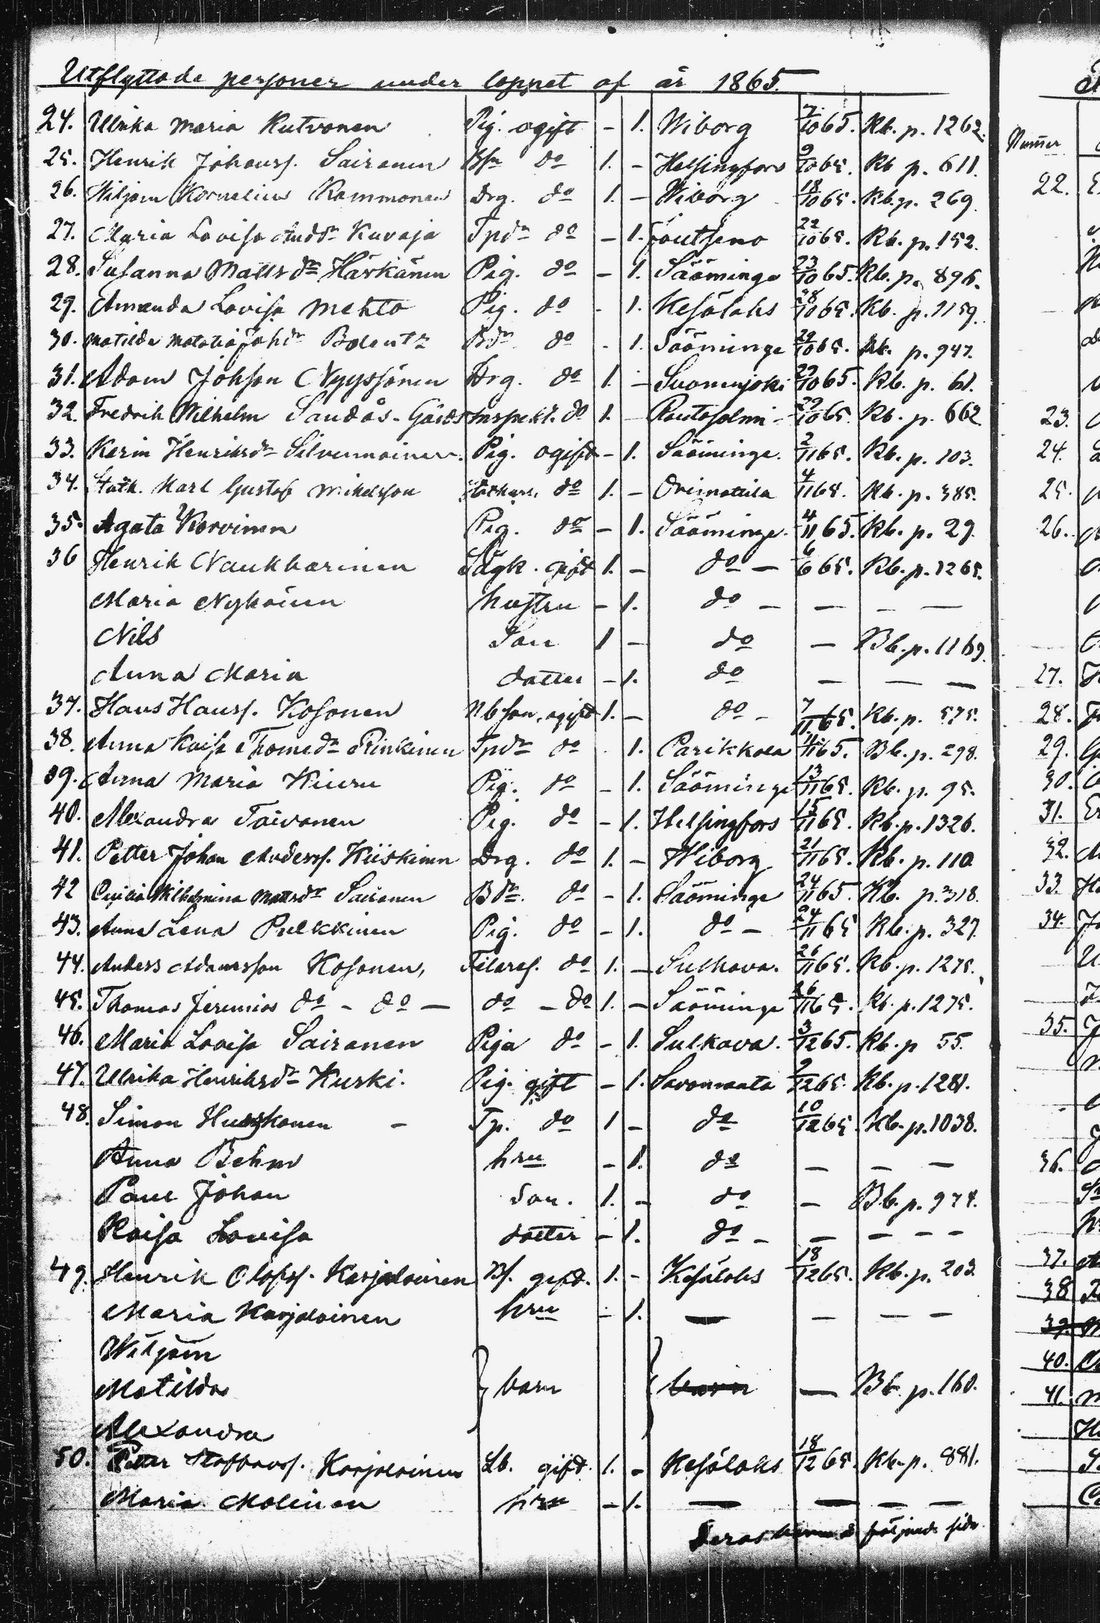 Utflyttade personer under loppet af år 1865.
24. Ulrika Maria Rutvonen Pig. ogift – 1. Wiborg 7/10 65. Kb. p. 1262.
25. Henrik Johanss. Sairanen do 1. – Helsingfors 9/10 65. Kb p. 611.
26. Wiljam Kornelius Rommonen Drg. do 1. – Wiborg 18/10 65. Kb. p. 269.
27. Maria Lovisa Andsdr Kuvaja Tpdr do – 1. Joutseno 22/10 65. Kb. p. 152.
28. Susanna Mattsdr Härkänen Pig. do – 1. Sääminge 23/10 65 Kb. p. 896.
29. Amanda Lovisa Mehto Pig. do . 1. Kesälaks 28/10 65. Kb. p. 1159.
30. Matilda Johdr Bdr do . 1. Sääminge 29/10 65. Kb. p. 947.
31. Adam Johsson Nyyssönen Drg. do 1. – Suomusjoki 29/10 65. Kb. p. 61.
32. Fredrik Wilhelm Sandås Gårds Inspekt. do 1. – Rautasalmi 29/10 65. Kb. p. 662
33. Karin Henriksdr Silvennoinen. Pig. ogift – 1. Sääminge. 2/11 65. Kb. p. 103.
34. Karl Gustaf Mikelsson do 1. – Orimattila 4/11 65. Kb. p. 385.
35. Agata Korvinen Pig. do – 1. Sääminge. 4/11 65. Kb. p. 29.
36 Henrik Naukkarinen Sågk. gift 1. – do – 6/6 65. Kb. p. 1265.
Maria Nykäinen hustru – 1. do – – – –
Nils Son 1 – do – Bb. p. 1169.
Anna Maria dotter – 1. do – – –
37. Hans Hanss. Kosonen Nbson, ogift 1. – do – 7/11 65. Kb. p. 575.
38. Anna Kaisa Thomsdr Pinkinen Tpdr do . 1. Parikkala 11/11 65. Bb. p. 298.
39. Anna Maria Kiuru Pig. do – 1. Sääminge 13/11 65. Kb. p. 95.
40. Alexandra Taivanen Pig. do – 1. Helsingfors 15/11 65. Kb. p. 1326.
41. Petter Johan Anderss. Kiiskinen Drg. do 1. – Wiborg 21/11 65. Kb. p. 110
42 Cecilia Wilhelmina Mattsdr Sairanen Bdr. do – 1. Sääminge 24/11 65. Kb. p. 318.
43. Anna Lena Pulkkinen Pig. do – 1. do – 24/11 65 Kb. p. 327.
44. Anders Adamsson Kosonen, do 1. – Sulkava. 26/11 65. Kb. p. 1275.
45. Thomas Jeremias do – do – do – do 1. – Sääminge 26/11 65. Kb. p. 1275.
46. Maria Lovisa Sairanen Piga do – 1. Sulkava. 3/12 65. Kb. p 55.
47. Ulrika Henriksdr Kurki. Pig. gift – 1. Savonranta 9/12 65. Kb. p. 1281.
48. Simon – Tp. do 1 – do 10/12 65. Kb. p. 1038.
Anna Behm hru – 1. do – – –
Paul Johan Son. 1. – do – – Bb. p. 974.
Kaisa Lovisa dotter – 1. do – – – – –
49. Henrik Olofss. Karjalainen Bs. gift. 1. – Kesälaks 18/12 65. Kb. p. 203.
Maria Karjalainen hru – 1. – – – –
Wiljam
Matilda barn barn – Bb. p. 160.
Alexandra
50. Petter Staffanss. Karjalainen Lb. gift. 1. – Kesälaks 18/12 65. Kb. p. 881.
Maria Molinen hru – 1. – – – –
Deras barn å följande sida
Numer
22.
23.
24.
25.
26.
27.
28.
29.
30.
31.
32.
33.
34.
35.
36.
37.
38
39.
40.
41.